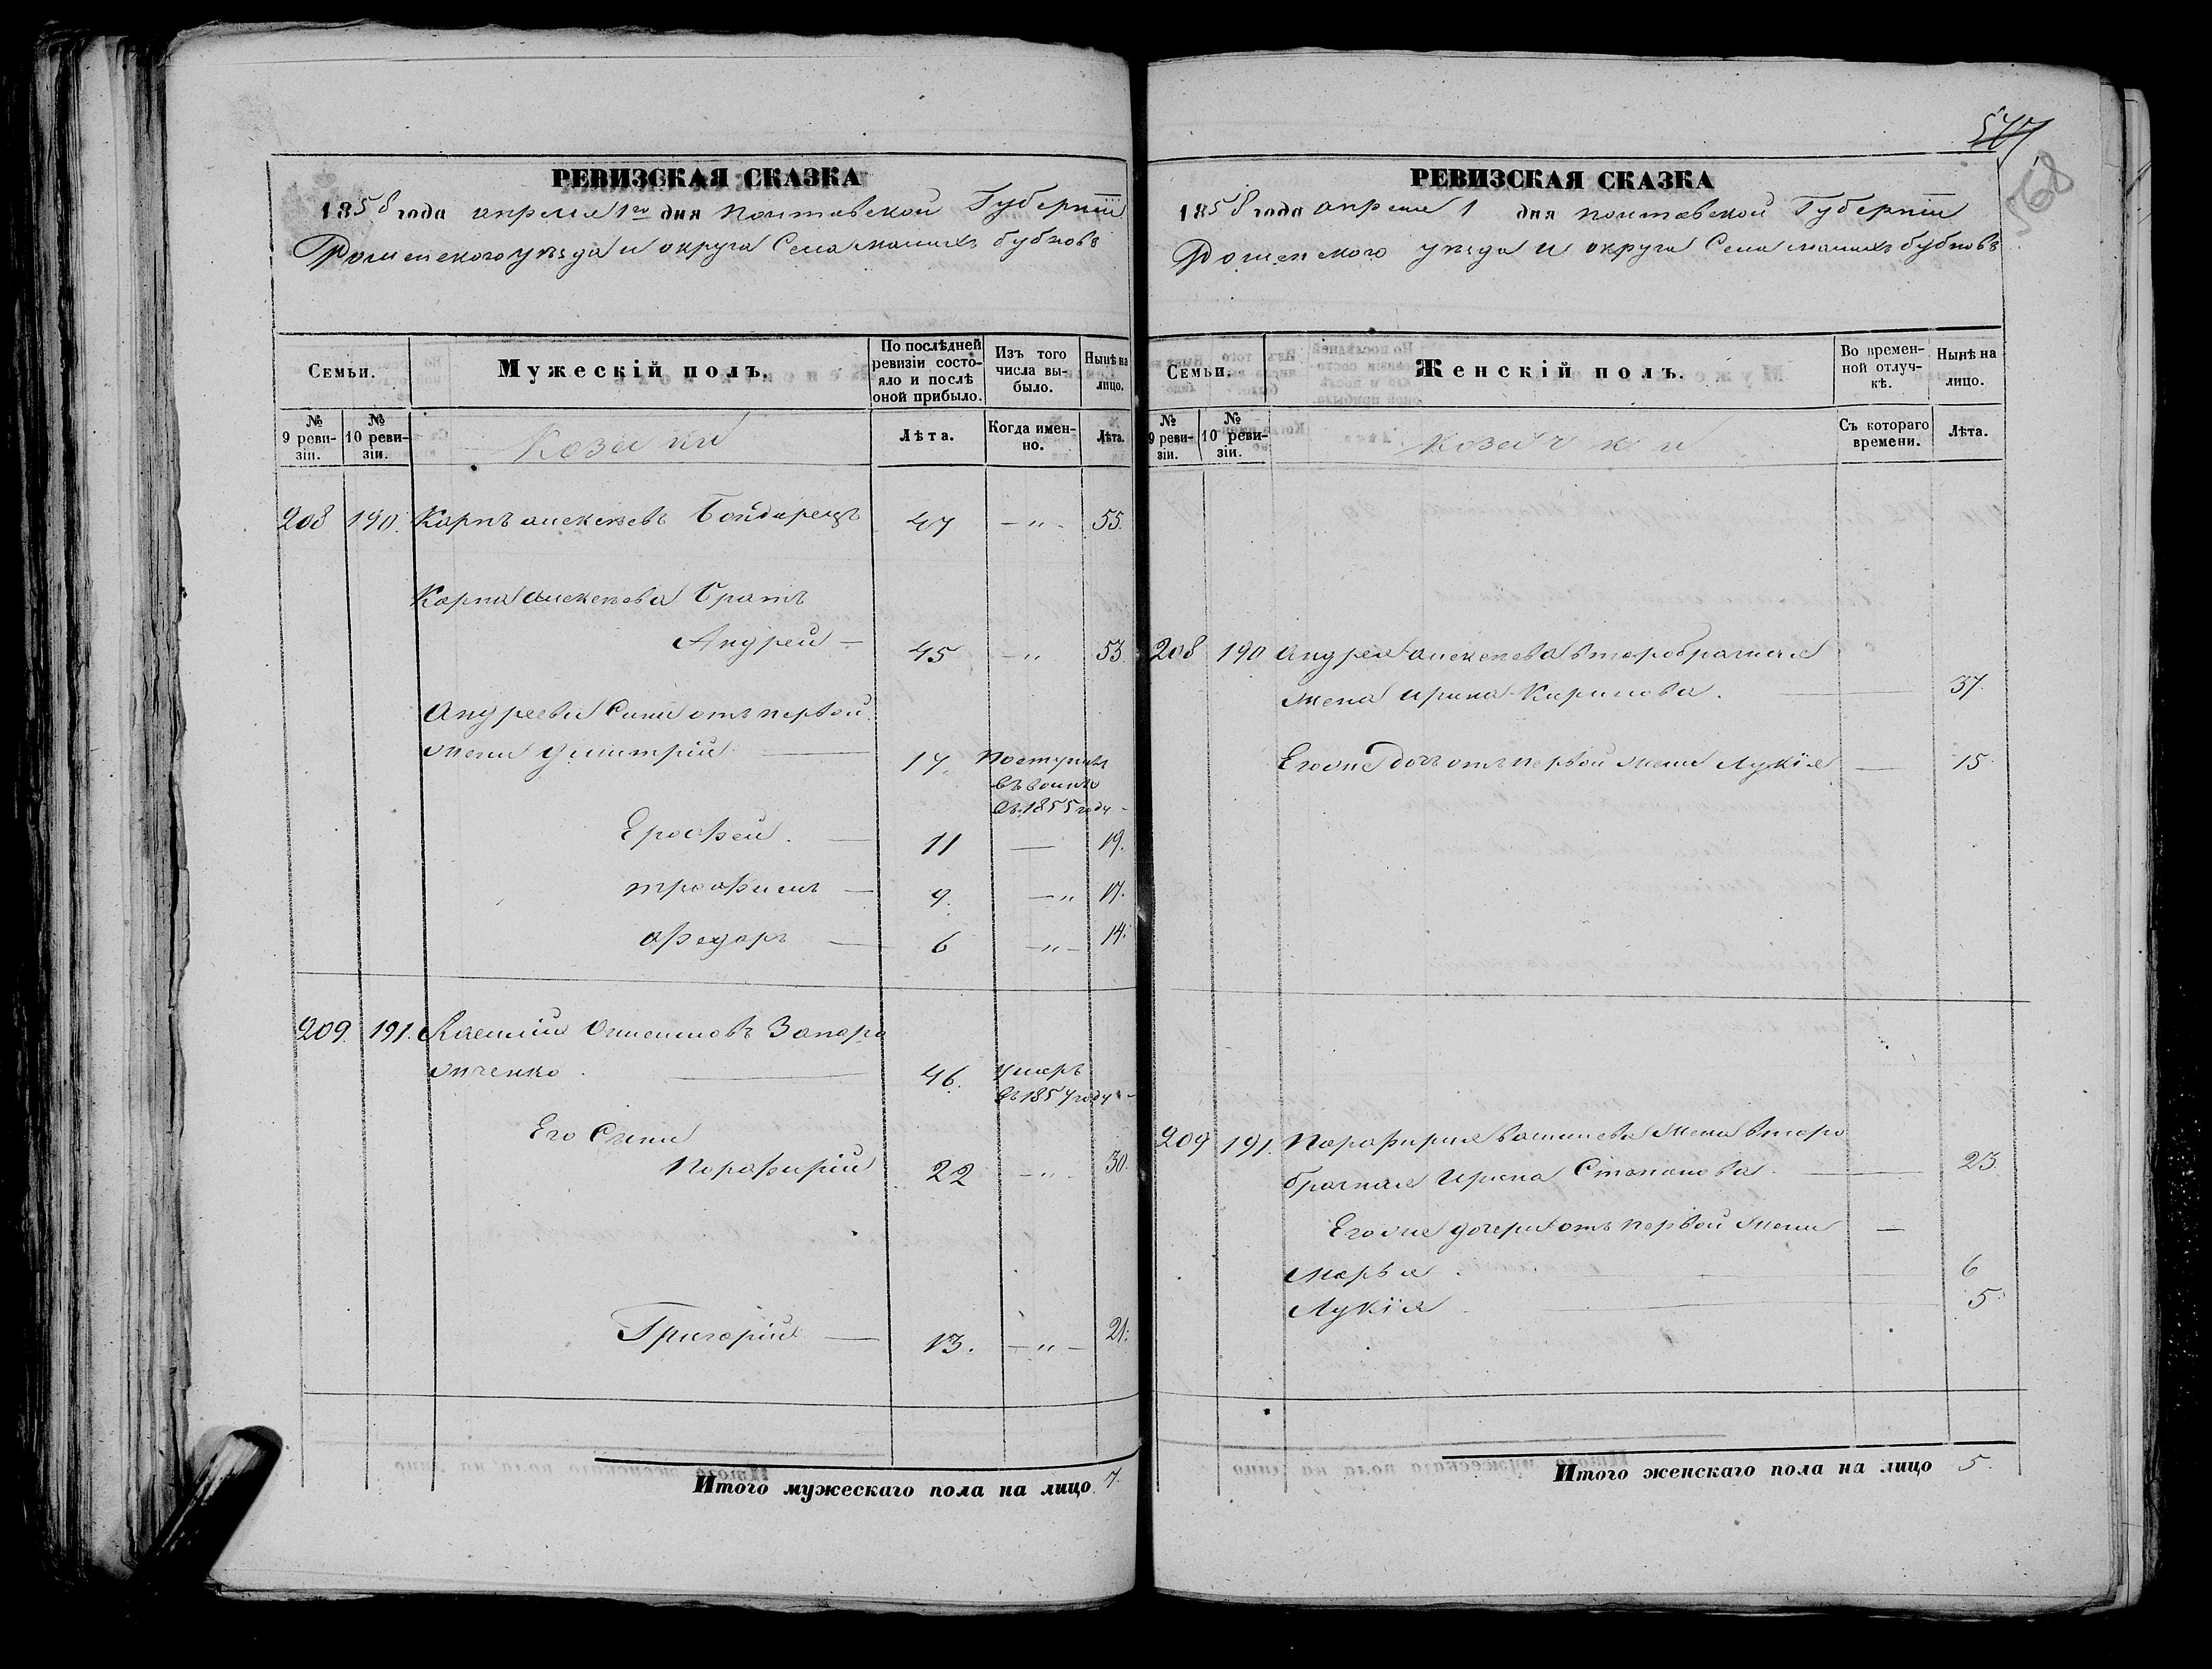 РЕВИЗСКАЯ СКАЗКА
1858 года апреля 1го дня полтавской Губернiи
Роменского уезда и округа Села малихъ бубновъ
Семьи.
Мужескій полъ.
По послѣдней ревизіи состояло и послѣ оной прибыло.
Изъ того числа выбыло.
Нынѣ на лицо.
№ 9 ревизіи.
№ 10 ревизіи.
Козаки
Лѣта.
Когда именно.
Лѣта.
208 190. Карпъ алексеевъ Бойдаренъ 47 —„— 55.
Карпа алексеева братъ
Андрей — 45 —„ 53.
Андреевы Сини отъ первой
жени дмитрій — 17. поступилъ
въ 1855 году —
Ерофей. — 11 — 19.
трофимъ — 9. —„ 17.
федоръ — 6 —„— 14.
209. 191. Василій Онисимовъ Запоро
жченко. — 46. умеръ
въ 1857 году —
Его Сини
Порфирій 22 —„— 30.
Григорій — 13. —„— 21.
Итого мужескаго пола на лицо 7.
547
568
РЕВИЗСКАЯ СКАЗКА
1858 года апреля 1 дня полтавской Губернiи
Роменского уезда и округа Села малихъ бубновъ
Семьи.
Женскій полъ.
Во временной отлучкѣ.
Нынѣ на лицо.
№ 9 ревизіи.
№ 10 ревизіи.
Козачки
Съ котораго времени.
Лѣта.
208 190 андрея алексеева второбрачная
жена ирина Кирилова. — 37.
Егоже дочь отъ первой жени Лукія — 15.
209 191. Порфирия васильева жена второ
брачная ирина Степанова. — 23.
Егоже дочери отъ первой жени —
Марья. — 6
Лукія. — 5.
Итого женскаго пола на лицо 5.